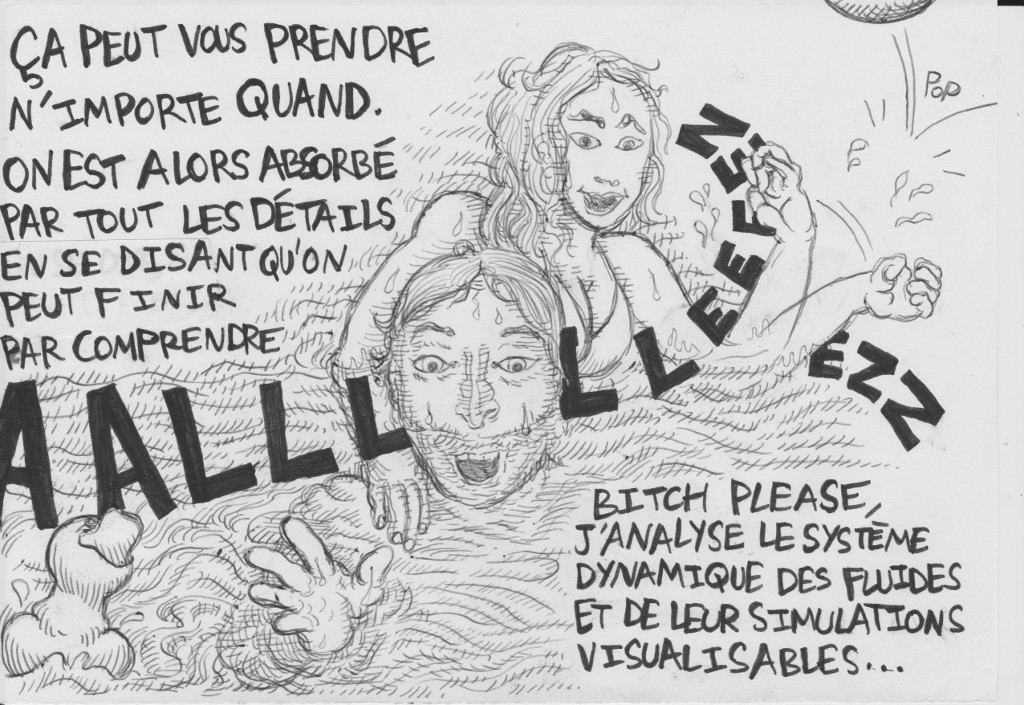 ÇA PEUT VOUS PRENDRE
N'IMPORTE QUAND.
ON EST ALORS ABSORBÉ
PAR TOUT LES DÉTAILS
EN SE DISANT QU'ON
PEUT FINIR
PAR COMPRENDRE
POP
AALLLLLLLEEEEENNEZZ
BITCH PLEASE,
J'ANALYSE LE SYSTÈME
DYNAMIQUE DES FLUIDES
ET DE LEUR SIMULATIONS
VISUALISABLES...